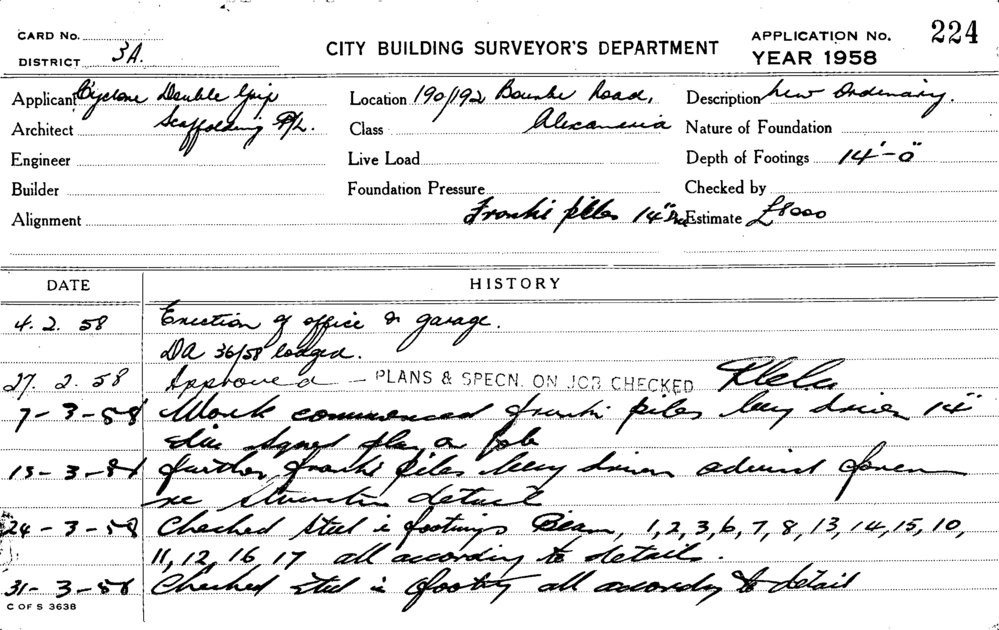 CARD No. APPLICATION No. 224
DISTRICT 3A. CITY BUILDING SURVEYOR'S DEPARTMENT YEAR 1958
Applicant Cyclone Double Grip Location 190/192 Bourke Road, Description New Ordinary.
Architect Scaffolding P/L. Class Alexandria Nature of Foundation
Engineer Live Load Depth of Footings 14'-0"
Builder Foundation Pressure Checked by
Alignment Franki piles 14" Dia Estimate £8000
DATE HISTORY
4. 2. 58 Erection of office & garage.
DA 36/58 lodged.
27. 2. 58 Approved - PLANS & SPECN. ON JOB CHECKED
7-3-58 Work commenced franki piles being driven 14"
dia signed plan on job
13-3-58 further franki piles being driven advised foreman
re structural detail
24-3-58 Checked steel in footings Beam, 1, 2, 3, 6, 7, 8, 13, 14, 15, 10,
11, 12, 16 17 all according to details.
31-3-58 Checked steel in footing all according to detail
C OF S 3638